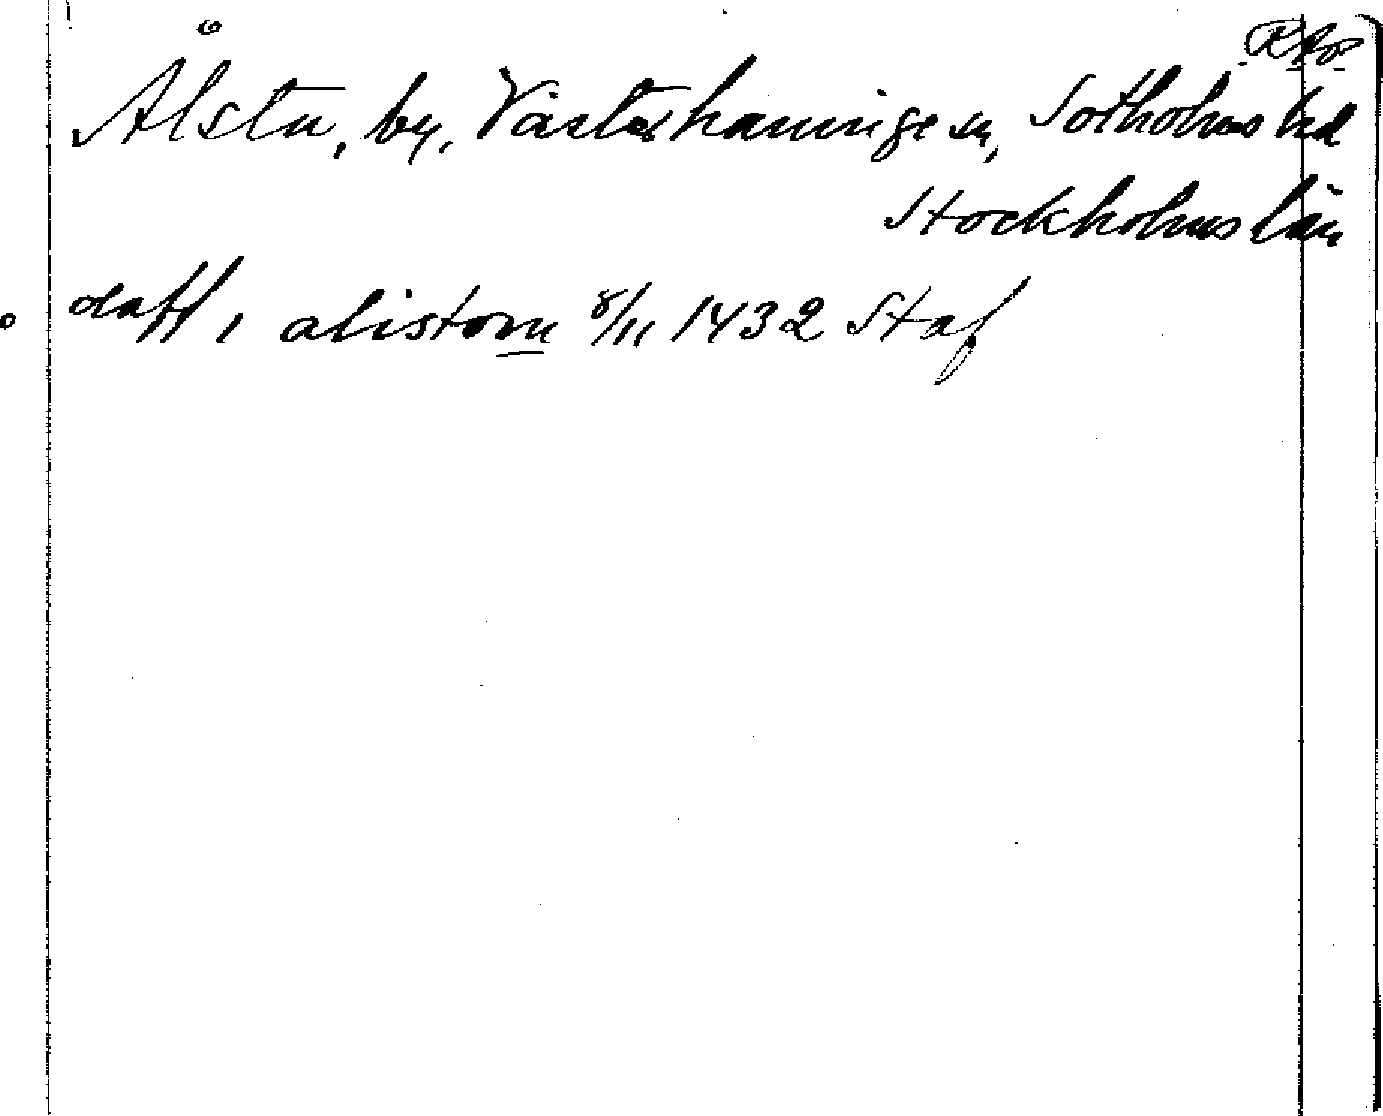 RAp
Ålsta, by, Västerhaninge sn, Sotholms hd
Stockholms län
datt, alistom 8/11 1432 Staf